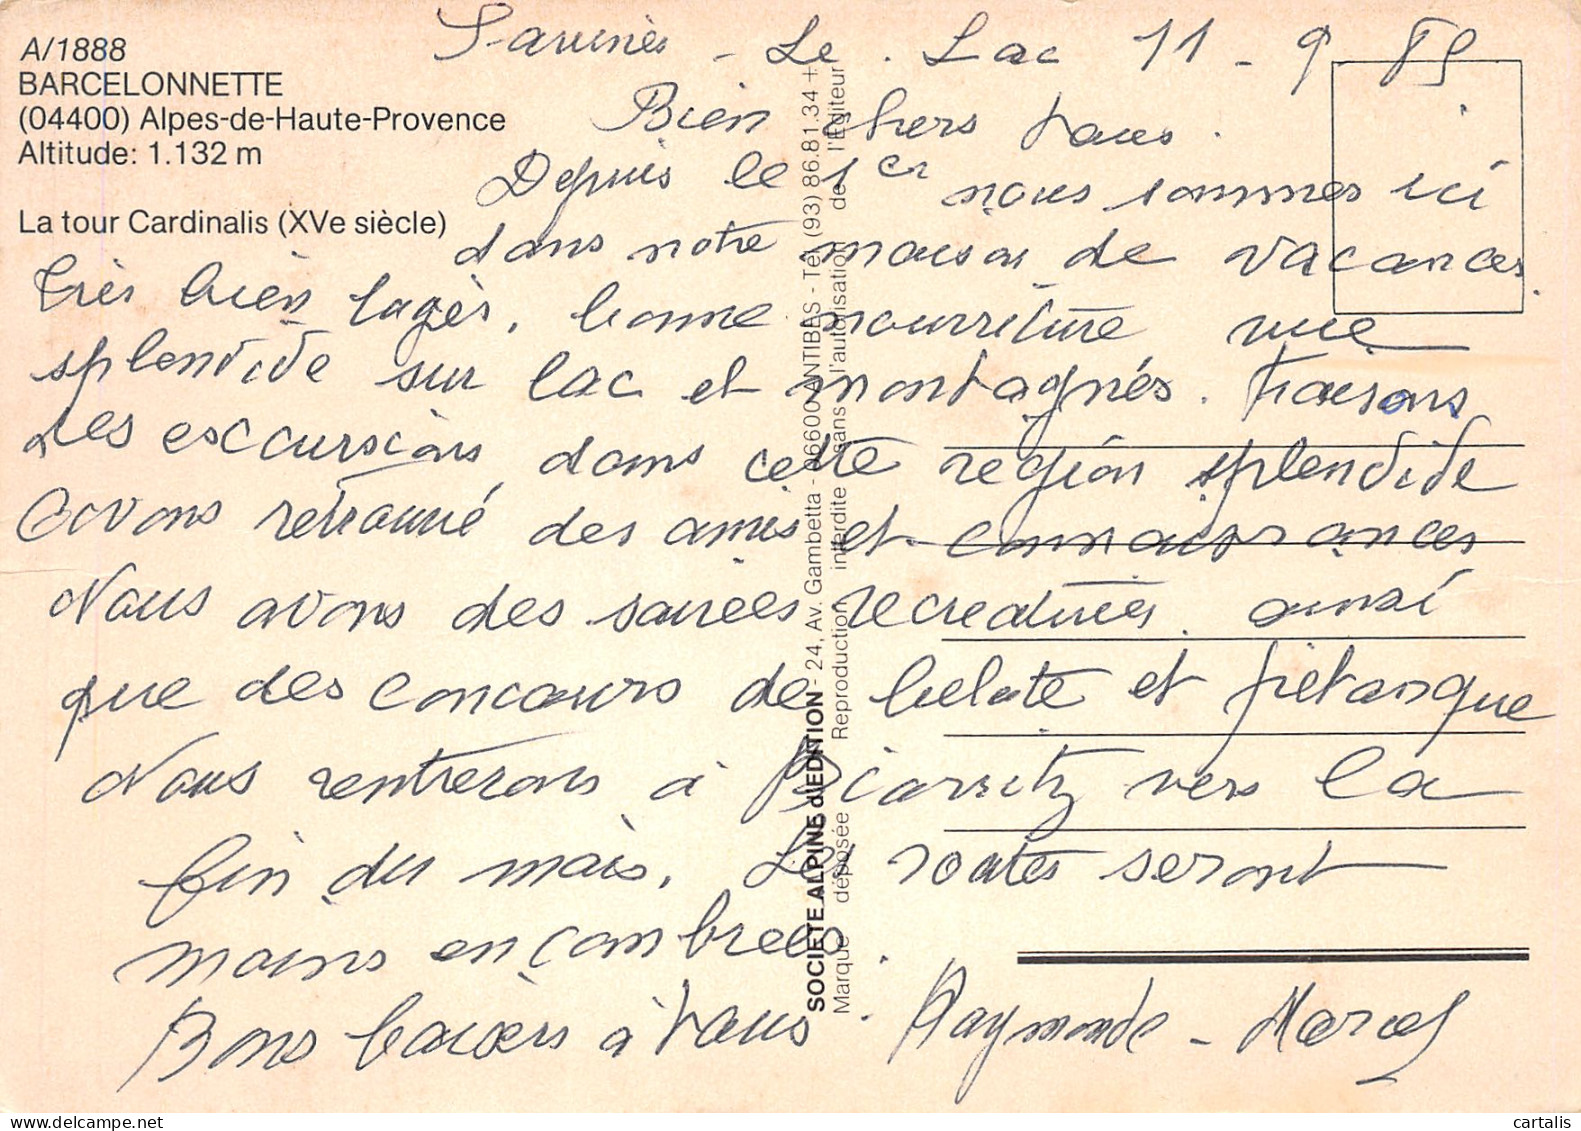 A/1888
BARCELONNETTE
(04400) Alpes-de-Haute-Provence
Altitude: 1.132 m
La tour Cardinalis (XVe siècle)
Savines - Le . Lac 11 - 9 89
Bien chers tous.
Depuis le 1er nous sommes ici
dans notre maison de vacances.
Très bien logés, bonne nourriture vue
splendide sur lac et montagnes. Faisons
des excursions dans cette region splendide
avons retrouvé des amis et connaissances
Nous avons des soirées recreatives ainsi
que des concours de belote et pietanque
Nous rentrerons à Biarritz vers la
fin du mois. Les routes seront
moins encombrees.
Bons baisers à tous. Raymonde - Marcel
SOCIETE ALPINE d'EDITION - 24, Av. Gambetta - 06600 ANTIBES - Tél. (93) 86.81.34 +
Marque déposée Reproduction interdite sans l'autorisation de l'Editeur
cartalis